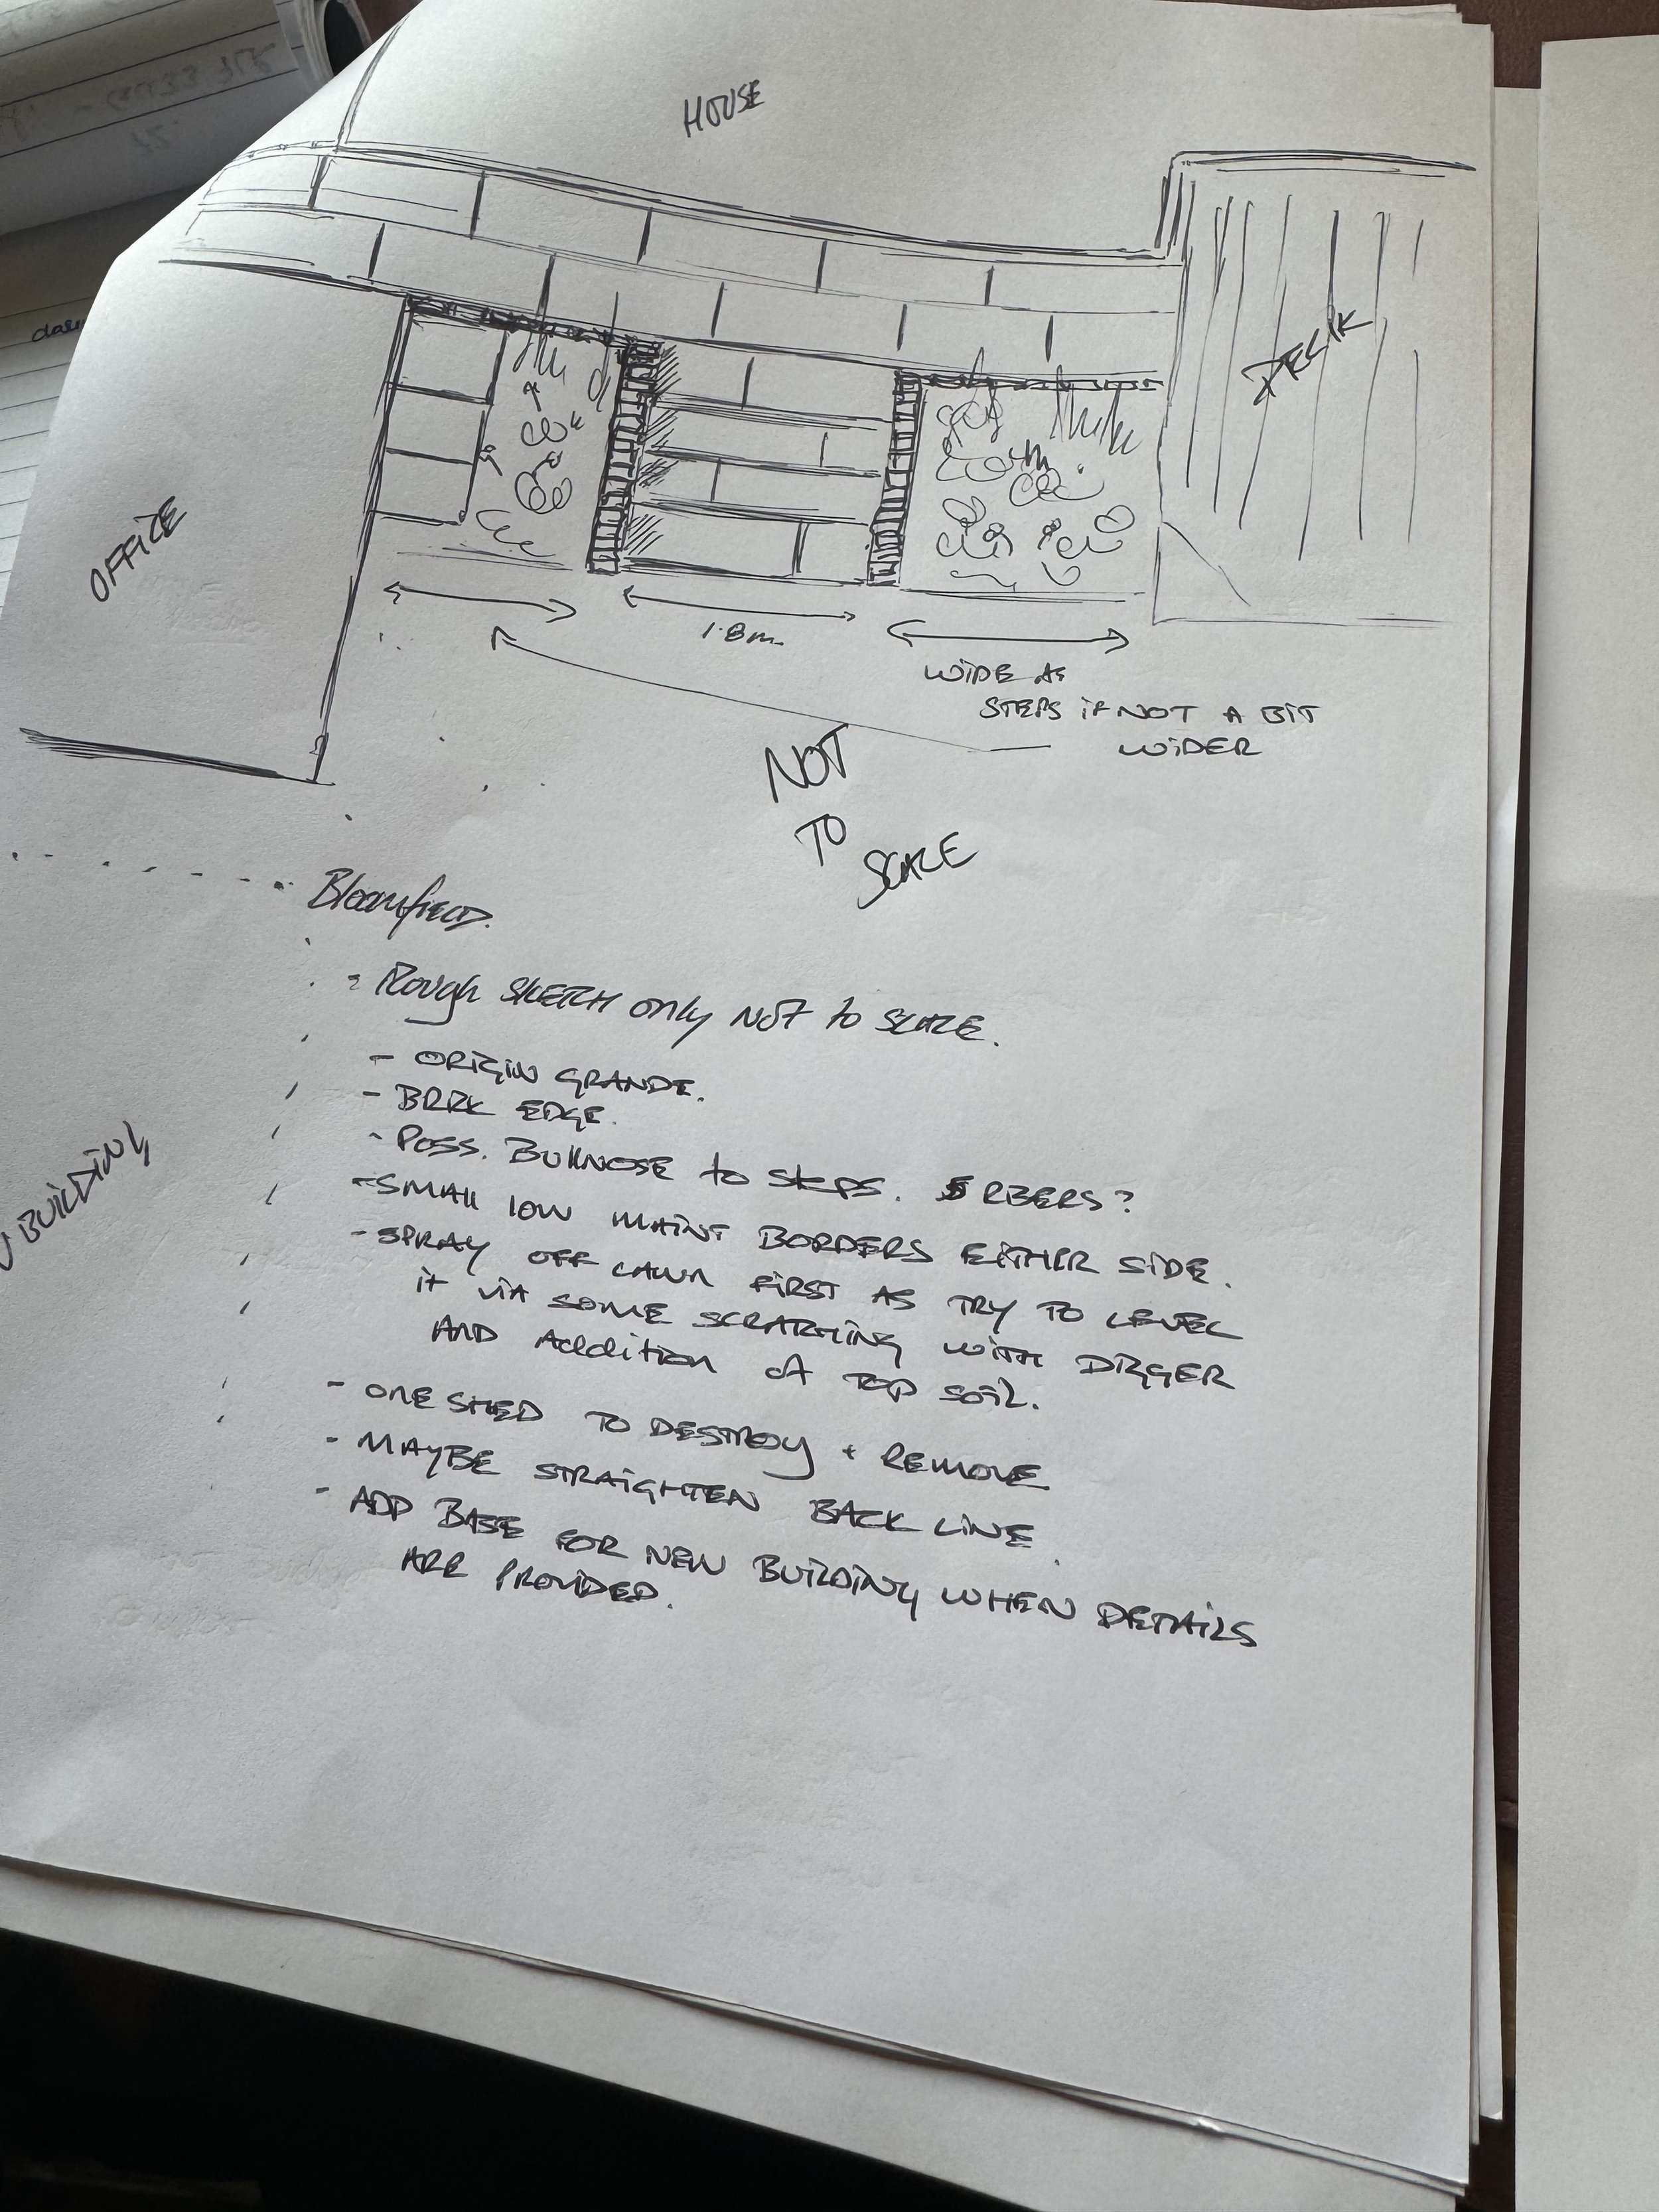 HOUSE
DECK
OFFICE
1.8m
WIDE AS
STEPS IF NOT A BIT
WIDER
NOT
TO
SCALE
Bloomfield.
- Rough SKETCH only NOT to SCALE.
- ORIGIN GRANDE.
- BRRK EDGE.
- Poss. BULLNOSE to STEPS. RBERS?
- SMALL LOW MAINT BORDERS EITHER SIDE.
- SPRAY OFF LAWN FIRST AS TRY TO LEVEL
it VIA SOME SCRATCHING WITH DIGGER
AND Addition of TOP SOIL.
- ONE SHED TO DESTROY + REMOVE
- MAYBE STRAIGHTEN BACK LINE.
- ADD BASE FOR NEW BUILDING WHEN DETAILS
ARE PROVIDED.
BUILDING